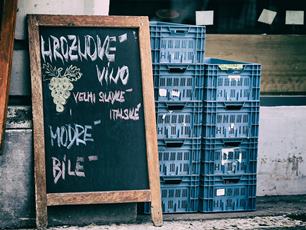 HROZNOVÉ
VÍNO
VELMI SLADKÉ
ITALSKÉ
MODRÉ
BÍLÉ